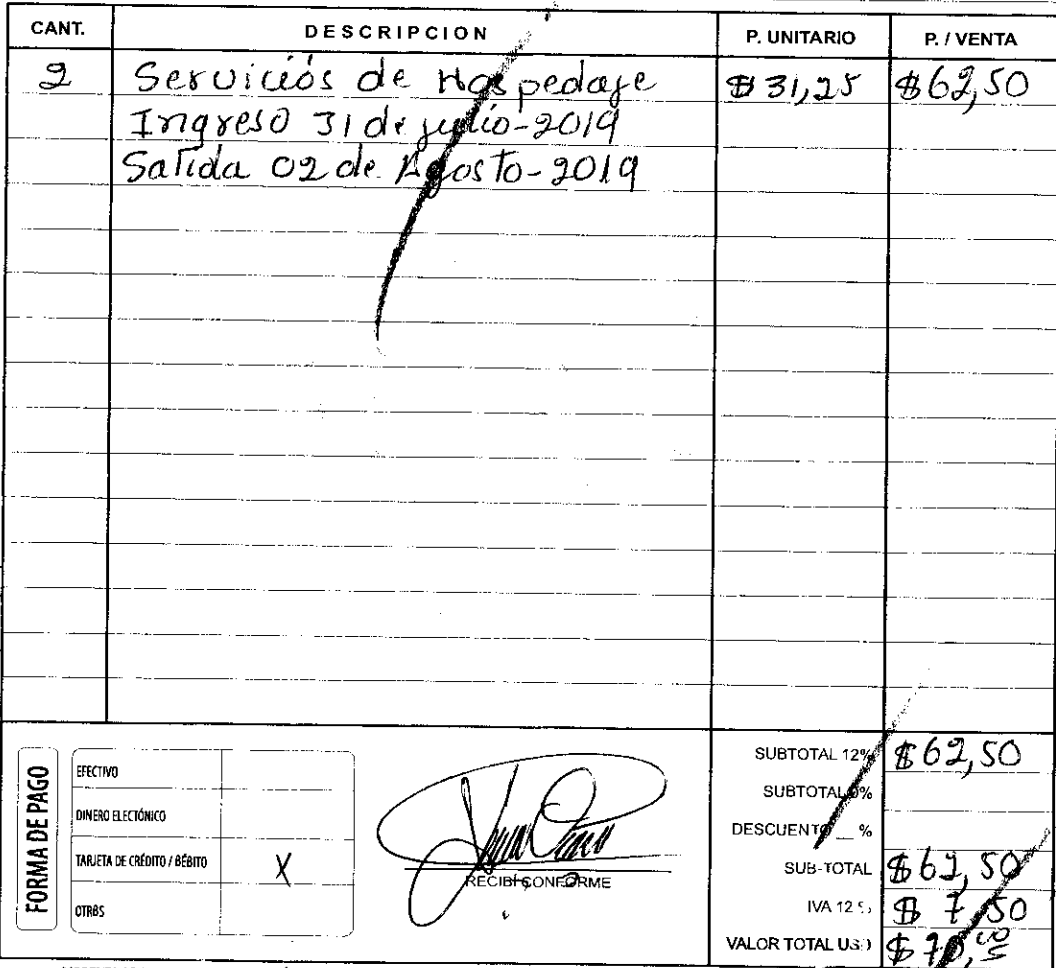 CANT. DESCRIPCION P. UNITARIO P. / VENTA
2 Servicios de Hospedaje $31,25 $62,50
Ingreso 31 de julio-2019
Salida 02 de Agosto-2019
FORMA DE PAGO
EFECTIVO
DINERO ELECTÓNICO
TARJETA DE CRÉDITO / BÉBITO X
OTRBS
RECIBÍ CONFORME
SUBTOTAL 12% $62,50
SUBTOTAL 0%
DESCUENTO __ %
SUB-TOTAL $62,50
IVA 12 % $ 7,50
VALOR TOTAL USD $ 70,00